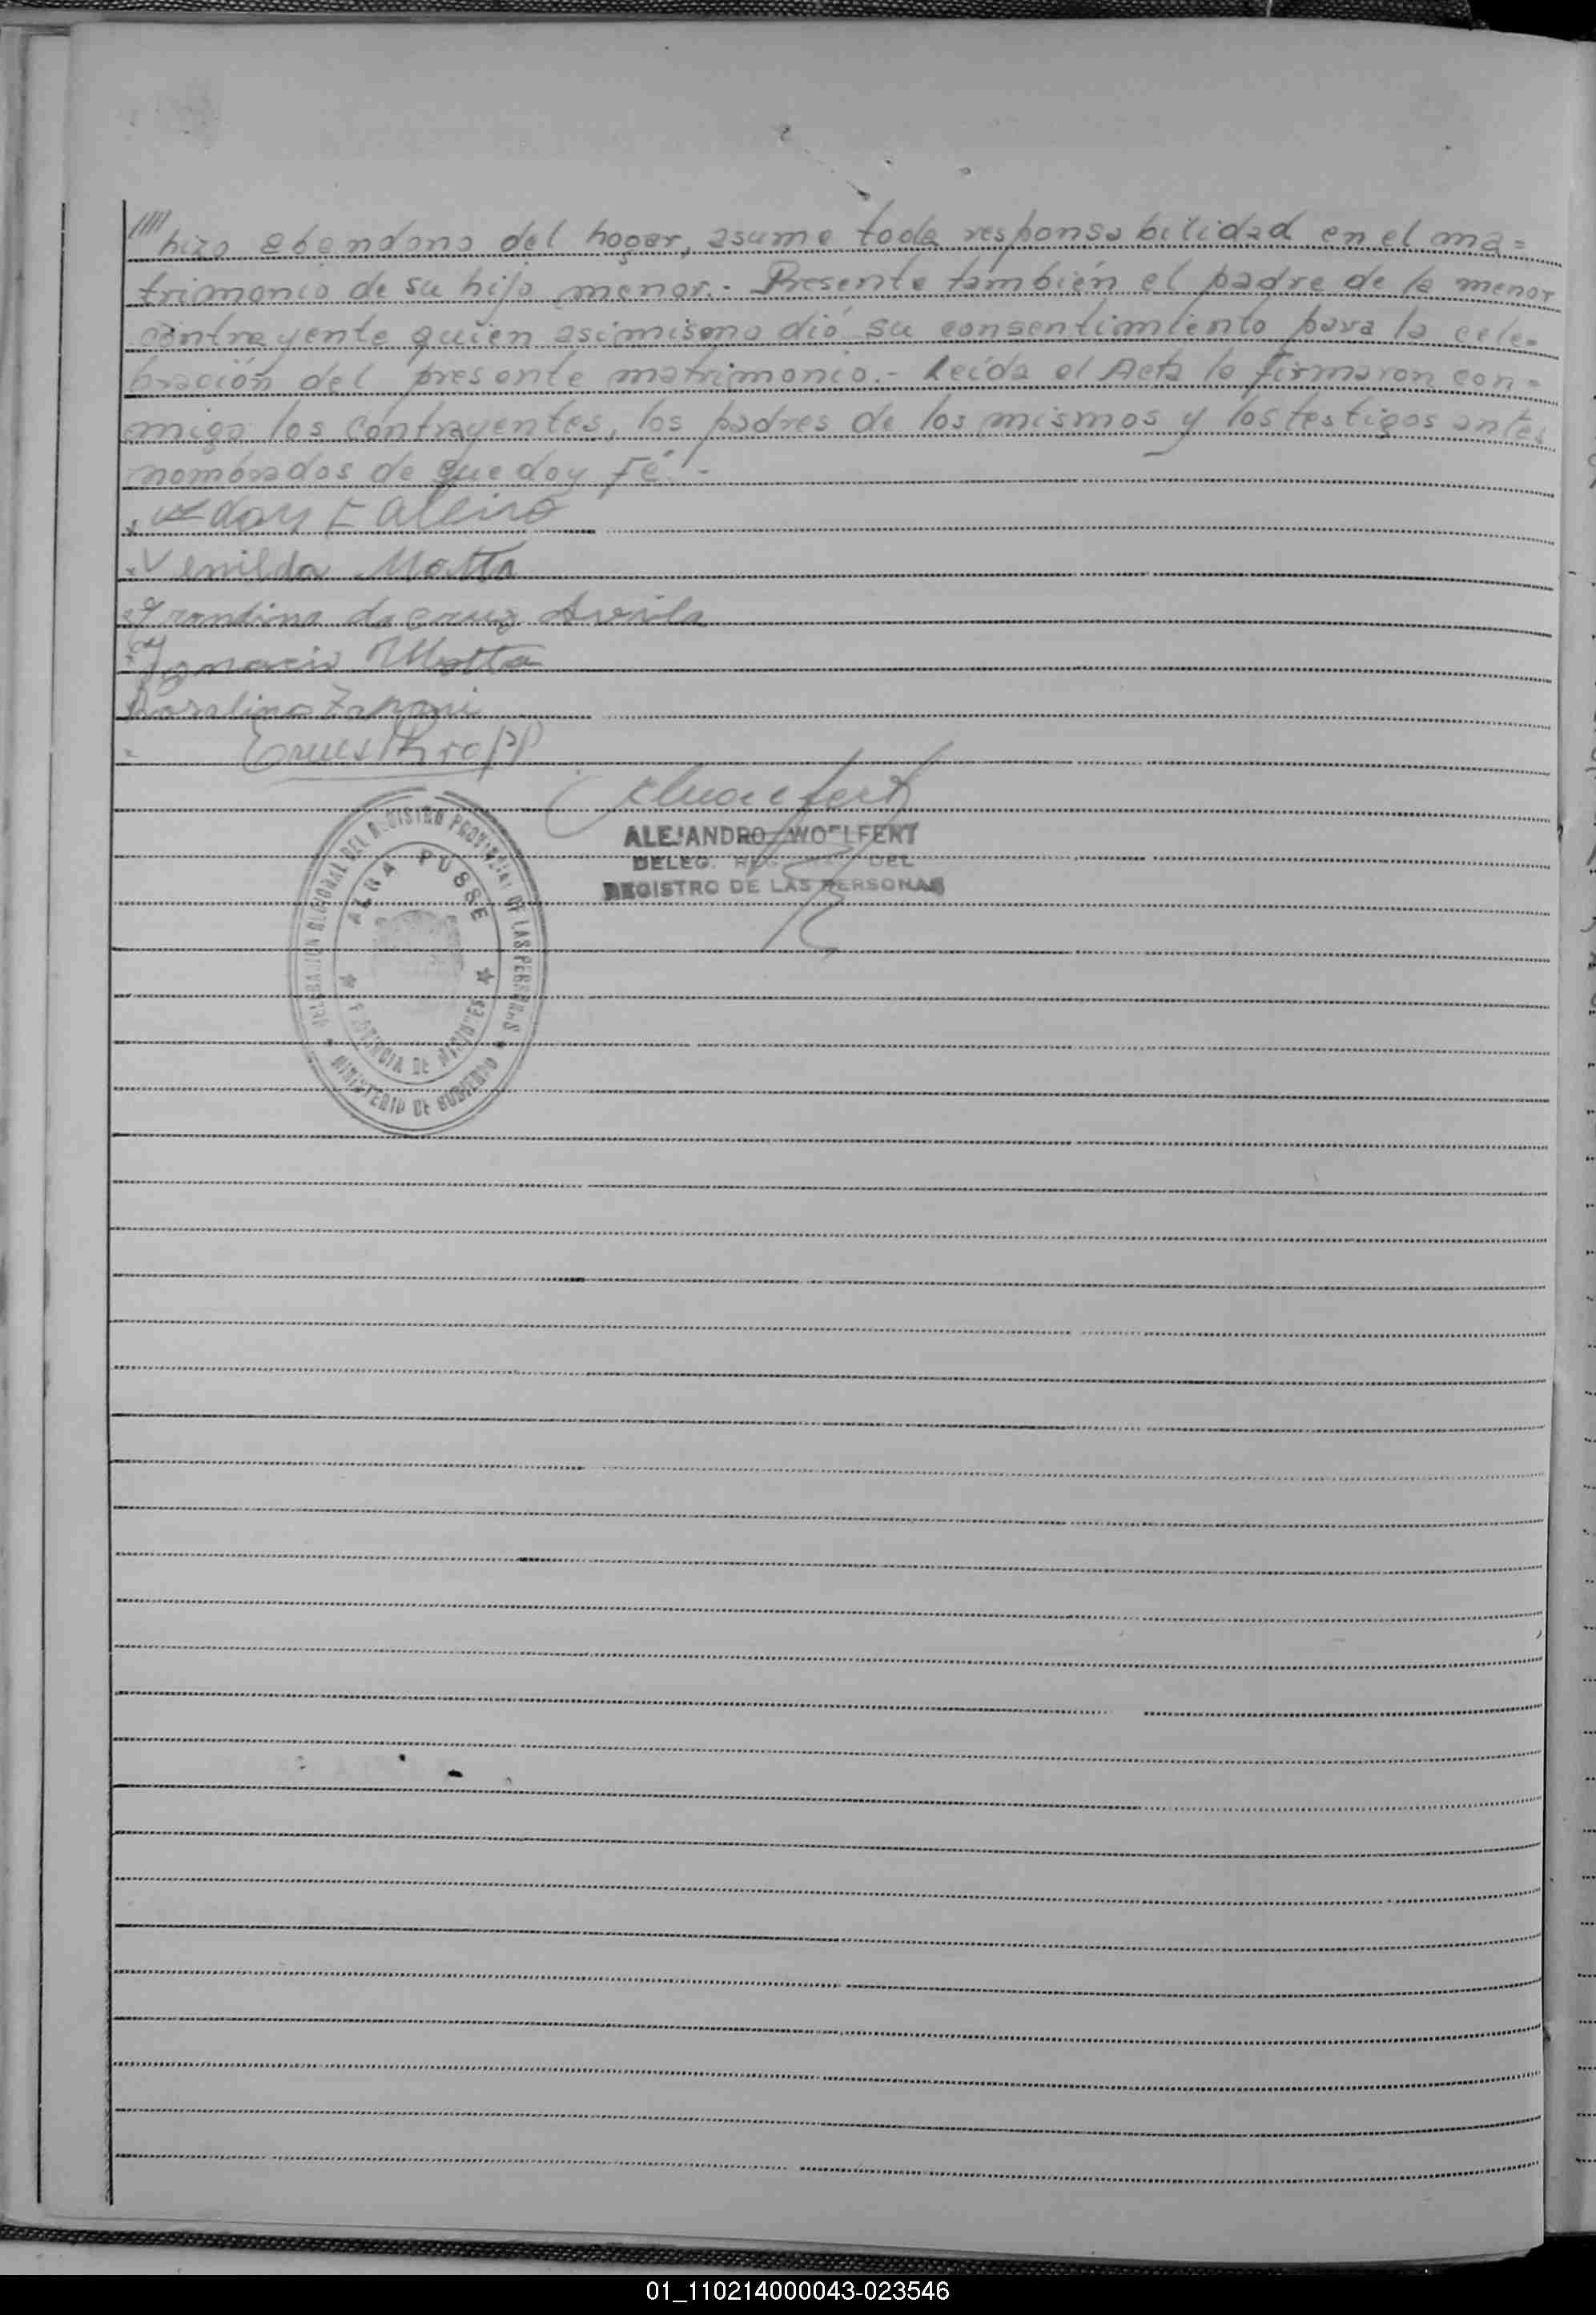 //// hizo abandono del hogar, asume toda responsabilidad en el ma=
trimonio de su hijo menor.- Presente también el padre de la menor
contrayente quien asimismo dió su consentimiento para la cele-
bración del presente matrimonio.- Leída el Acta la firmaron con-
migo los contrayentes, los padres de los mismos y los testigos antes
nombrados de que doy Fé.-
Venilda Motta
da cruz Avila
Ignacio Motta
Rosalino
ALEJANDRO WOELFERT
DELEG. DEL
REGISTRO DE LAS PERSONAS
DELEGACION REGIONAL DEL REGISTRO PROVINCIAL DE LAS PERSONAS
ALBA POSSE
PROVINCIA DE MISIONES
MINISTERIO DE GOBIERNO
01_110214000043-023546